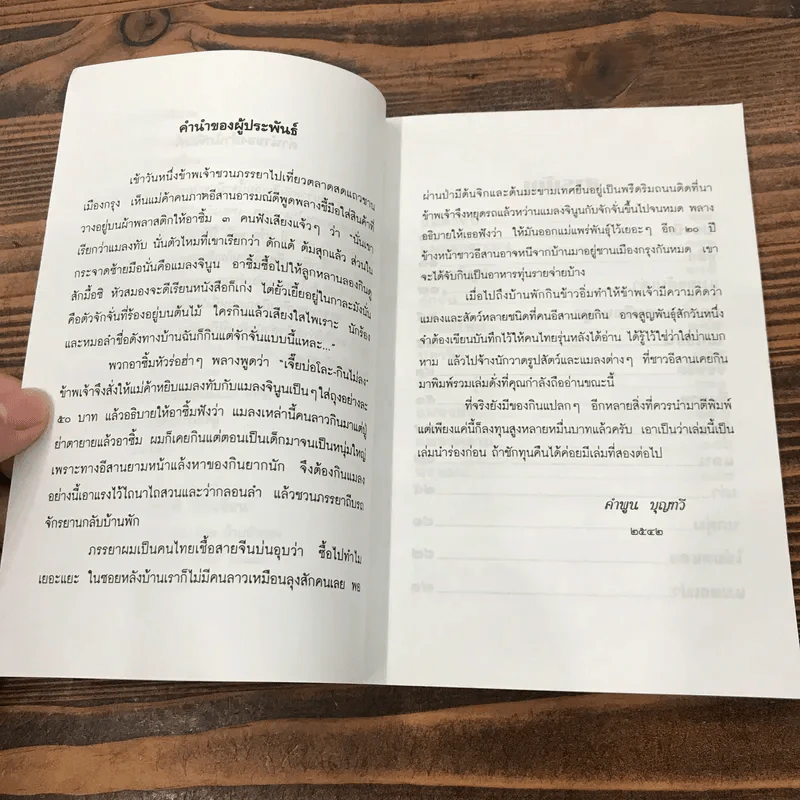 คำนำของผู้ประพันธ์
เช้าวันหนึ่งข้าพเจ้าชวนภรรยาไปเที่ยวตลาดสดแถวชาน
เมืองกรุง เห็นแม่ค้าคนภาคอีสานอารมณ์ดีพูดพลางชี้มือใส่สินค้าที่
วางอยู่บนผ้าพลาสติกให้อาซิ้ม ๓ คนฟังเสียงแจ้วๆ ว่า "นั่นเขา
เรียกว่าแมลงทับ นั่นตัวไหมที่เขาเรียกว่า ดักแด้ ต้มสุกแล้ว ส่วนใน
กระจาดซ้ายมือนั่นคือแมลงจินูน อาซิ้มซื้อไปให้ลูกหลานลองกินดู
สักมื้อซิ หัวสมองจะดีเรียนหนังสือก็เก่ง ไต่ยั้วเยี้ยอยู่ในกาละมังนั่น
คือตัวจักจั่นที่ร้องอยู่บนต้นไม้ ใครกินแล้วเสียงใสไพเราะ นักร้อง
และหมอลำชื่อดังทางบ้านฉันก็กินแต่จักจั่นแบบนี้แหละ..."
พวกอาซิ้มหัวร่อฮ่าๆ พลางพูดว่า "เจี๊ยบ่อโละ-กินไม่ลง"
ข้าพเจ้าจึงสั่งให้แม่ค้าหยิบแมลงทับกับแมลงจินูนเป็นๆใส่ถุงอย่างละ
๕๐ บาท แล้วอธิบายให้อาซิ้มฟังว่า แมลงเหล่านี้คนลาวกินมาแต่ปู่
ย่าตายายแล้วอาซิ้ม ผมก็เคยกินแต่ตอนเป็นเด็กมาจนเป็นหนุ่มใหญ่
เพราะทางอีสานยามหน้าแล้งหาของกินยากนัก จึงต้องกินแมลง
อย่างนี้เอาแรงไว้ไถนาไถสวนและว่ากลอนลำ แล้วชวนภรรยาถีบรถ
จักรยานกลับบ้านพัก
ภรรยาผมเป็นคนไทยเชื้อสายจีนบ่นอุบว่า ซื้อไปทำไม
เยอะแยะ ในซอยหลังบ้านเราก็ไม่มีคนลาวเหมือนลุงสักคนเลย พอ
ผ่านป่ามีต้นจิกและต้นมะขามเทศยืนอยู่เป็นพรืดริมถนนติดที่นา
ข้าพเจ้าจึงหยุดรถแล้วหว่านแมลงจินูนกับจักจั่นขึ้นไปจนหมด พลาง
อธิบายให้เธอฟังว่า ให้มันออกแม่แพร่พันธุ์ไว้เยอะๆ อีก ๒๐ ปี
ข้างหน้าชาวอีสานอาจหนีจากบ้านมาอยู่ชานเมืองกรุงกันหมด เขา
จะได้จับกินเป็นอาหารทุ่นรายจ่ายบ้าง
เมื่อไปถึงบ้านพักกินข้าวอิ่มทำให้ข้าพเจ้ามีความคิดว่า
แมลงและสัตว์หลายชนิดที่คนอีสานเคยกิน อาจสูญพันธุ์สักวันหนึ่ง
จำต้องเขียนบันทึกไว้ให้คนไทยรุ่นหลังได้อ่าน ได้รู้ไว้ใช่ว่าใส่บ่าแบก
หาม แล้วไปจ้างนักวาดรูปสัตว์และแมลงต่างๆ ที่ชาวอีสานเคยกิน
มาพิมพ์รวมเล่มดั่งที่คุณกำลังถืออ่านขณะนี้
ที่จริงยังมีของกินแปลกๆ อีกหลายสิ่งที่ควรนำมาตีพิมพ์
แต่เพียงแค่นี้ก็ลงทุนสูงหลายหมื่นบาทแล้วครับ เอาเป็นว่าเล่มนี้เป็น
เล่มนำร่องก่อน ถ้าชักทุนคืนได้ค่อยมีเล่มที่สองต่อไป
คำพูน บุญทวี
๒๕๔๒